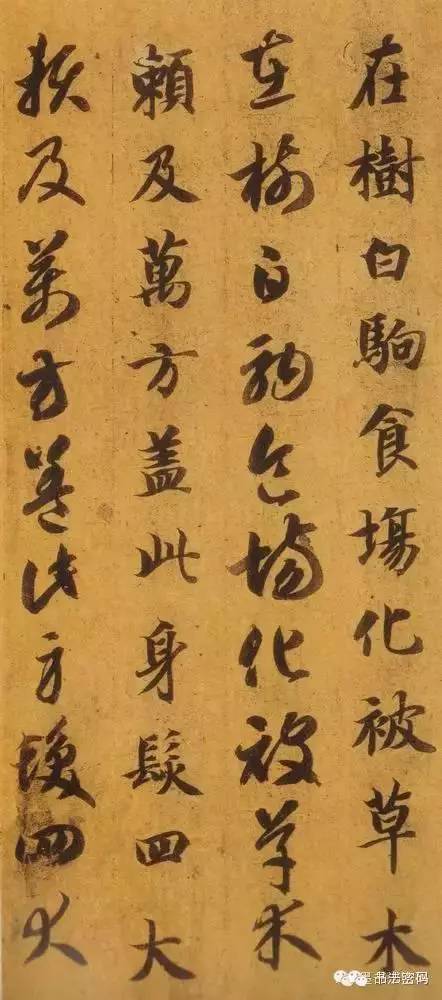 在樹白駒食塲化被草木
在樹白駒食場化被草木
頼及萬方盖此身髮四大
頼及萬方盖此身髮四大
密码